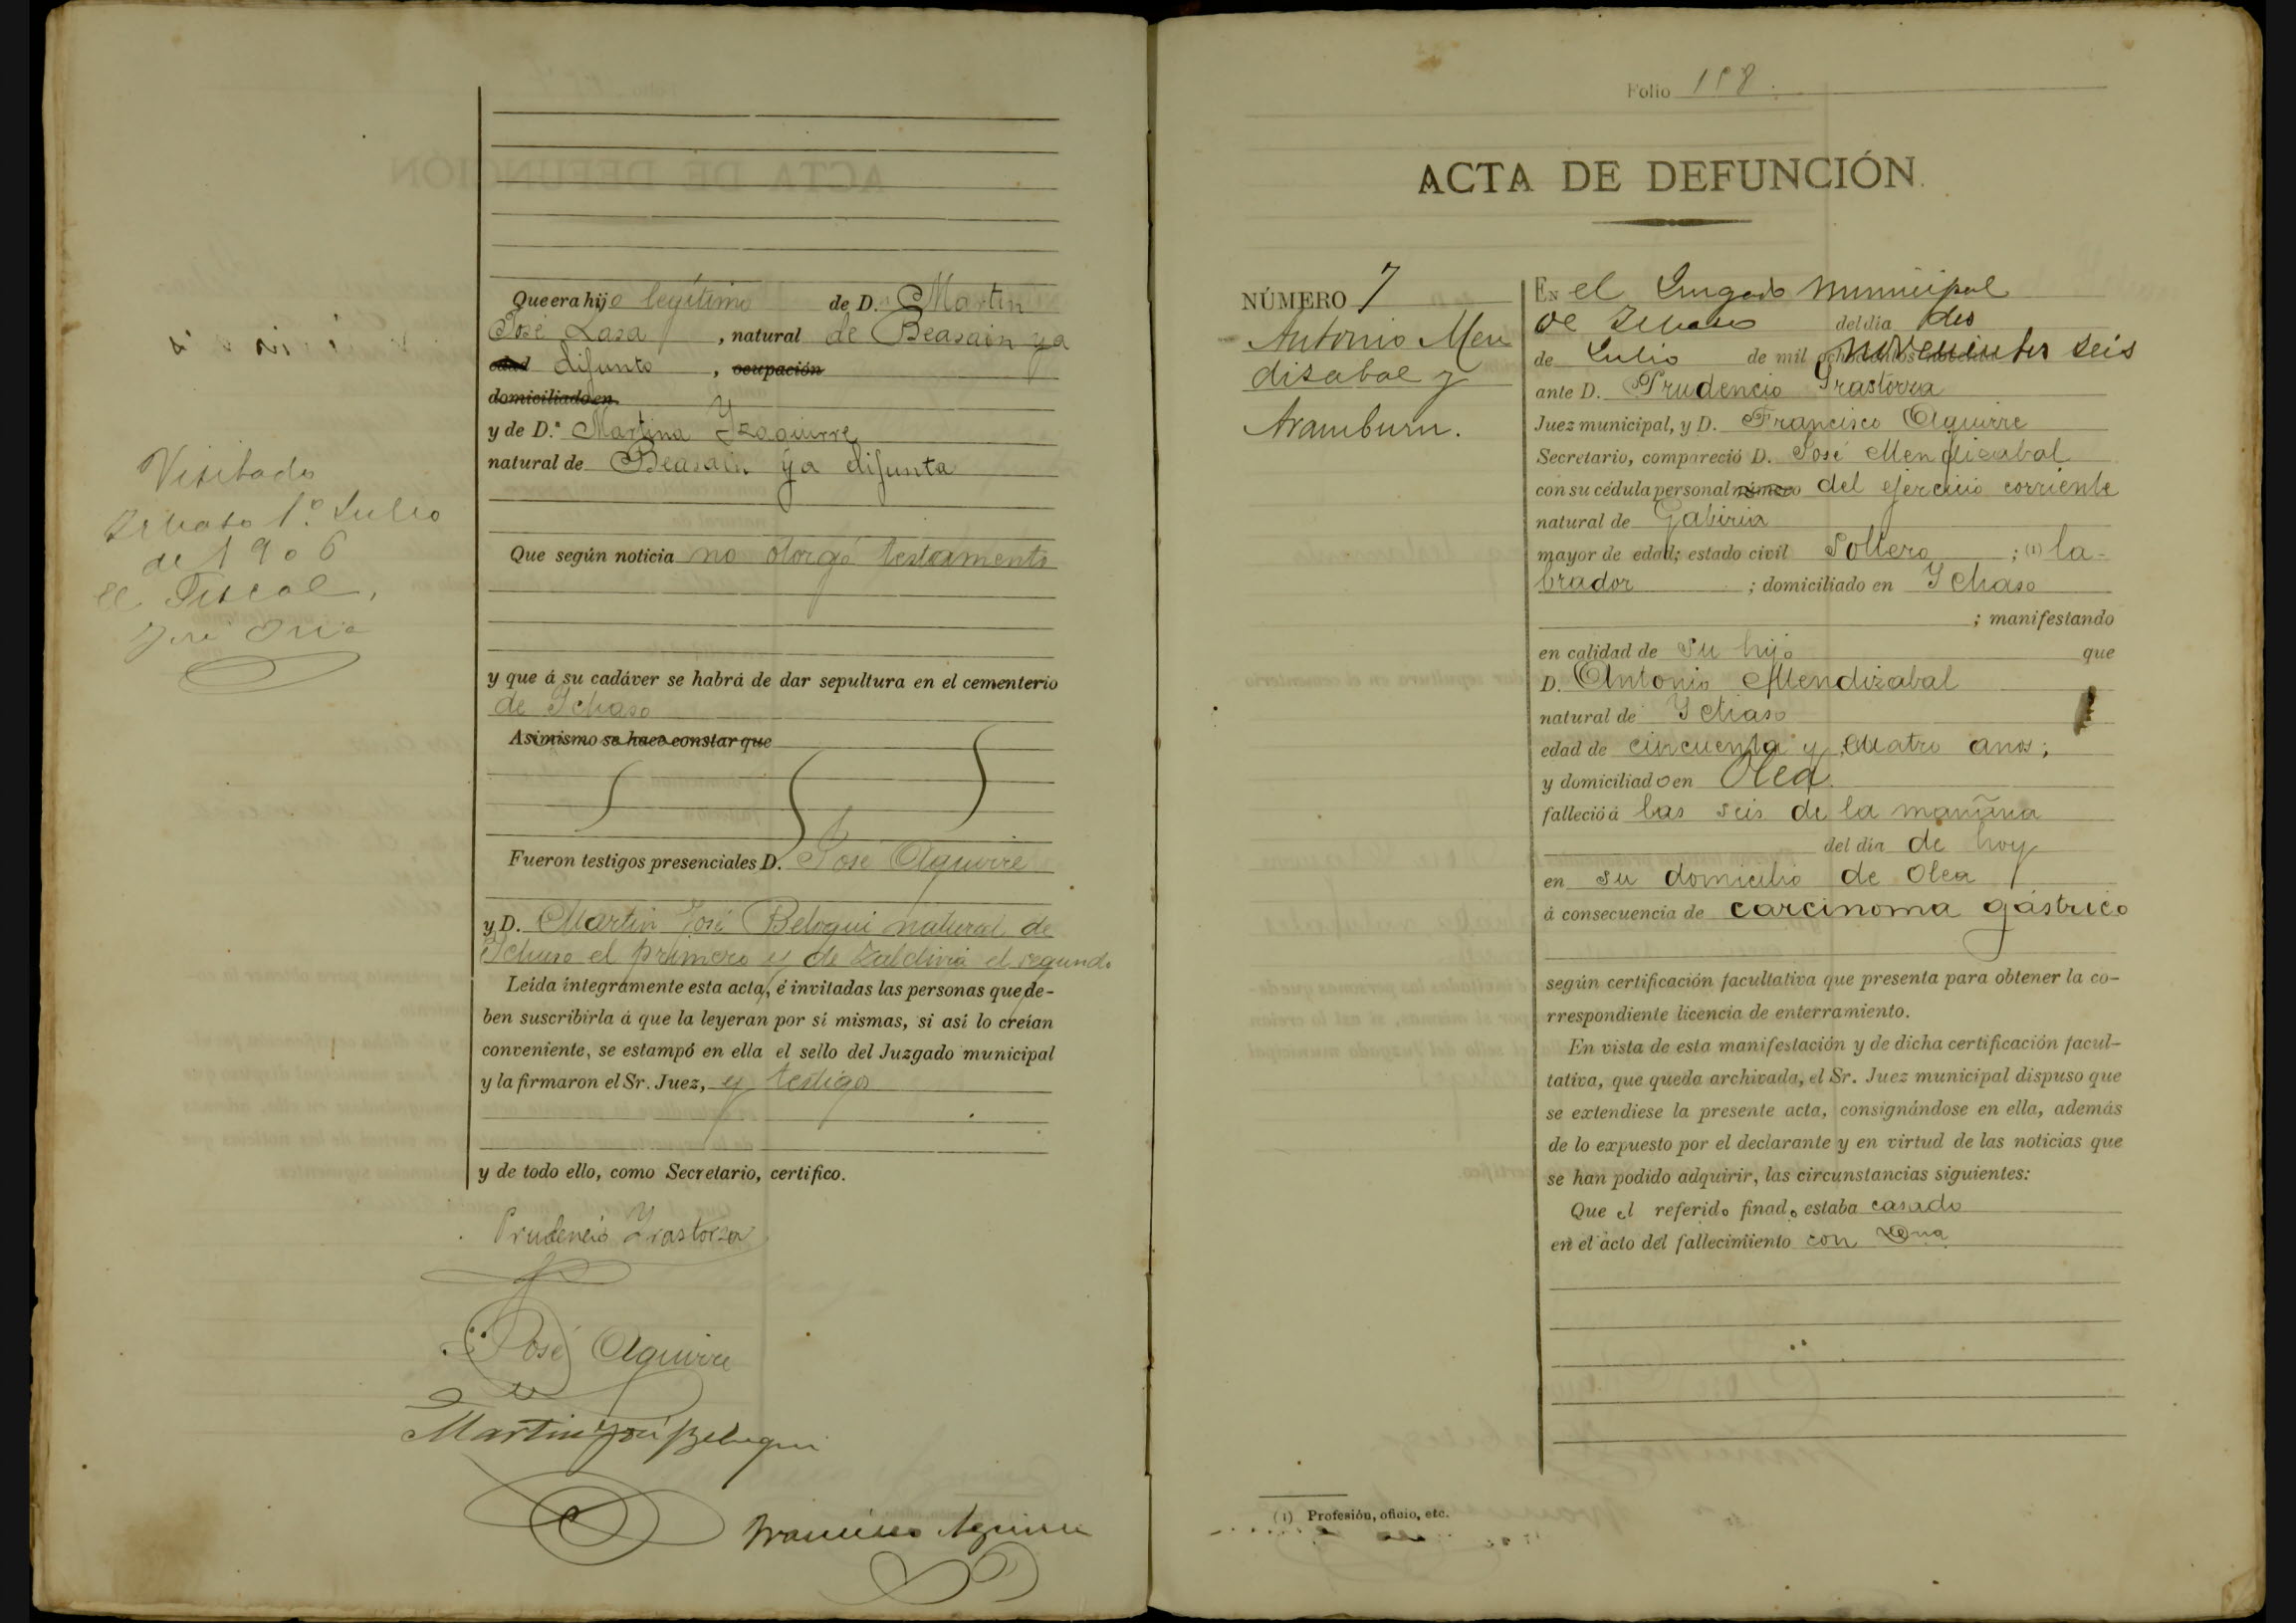 Que era hijo legítimo de D. Martin
José Lasa, natural de Beasain ya
edad difunto, ocupación
domiciliado en
y de D.ª Martina Yzaguirre
natural de Beasain ya difunta
Que según noticia no otorgó testamento
y que á su cadáver se habrá de dar sepultura en el cementerio
de Ychaso
Asimismo se hace constar que
Fueron testigos presenciales D. José Aguirre
y D. Martin José Beloqui natural de
Ychaso el primero y de Zaldivia el segundo
Leída íntegramente esta acta, é invitadas las personas que de-
ben suscribirla á que la leyeran por sí mismas, si así lo creían
conveniente, se estampó en ella el sello del Juzgado municipal
y la firmaron el Sr. Juez, y testigos
y de todo ello, como Secretario, certifico.
Prudencio Yrastorza
José Aguirre
Martin José Beloqui
Francisco Aguirre
Visitado
Ychaso 1.º Julio
de 1906
El Fiscal,
José
Folio 118.
ACTA DE DEFUNCIÓN.
NÚMERO 7
Antonio Men
dizabal y
Aramburu.
En el Juzgado municipal
de Ychaso del día dos
de Julio de mil ochocientos novecientos seis
ante D. Prudencio Yrastorza
Juez municipal, y D. Francisco Aguirre
Secretario, compareció D. José Mendizabal
con su cédula personal número del ejercicio corriente
natural de Gabiria
mayor de edad; estado civil Soltero; (1) la-
brador; domiciliado en Ychaso
; manifestando
en calidad de su hijo que
D. Antonio Mendizabal
natural de Ychaso
edad de cincuenta y cuatro anos;
y domiciliado en Olea.
falleció á las seis de la mañana
del día de hoy
en su domicilio de Olea
á consecuencia de carcinoma gástrico
según certificación facultativa que presenta para obtener la co-
rrespondiente licencia de enterramiento.
En vista de esta manifestación y de dicha certificación facul-
tativa, que queda archivada, el Sr. Juez municipal dispuso que
se extendiese la presente acta, consignándose en ella, además
de lo expuesto por el declarante y en virtud de las noticias que
se han podido adquirir, las circunstancias siguientes:
Que el referido finado estaba casado
en el acto del fallecimiento con Dna
(1) Profesión, oficio, etc.